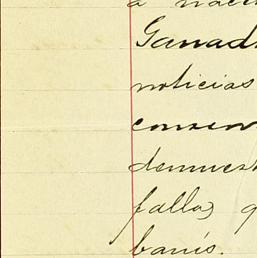 a nacer
Ganad
noticias
conven
demuest
fallos q
banis.